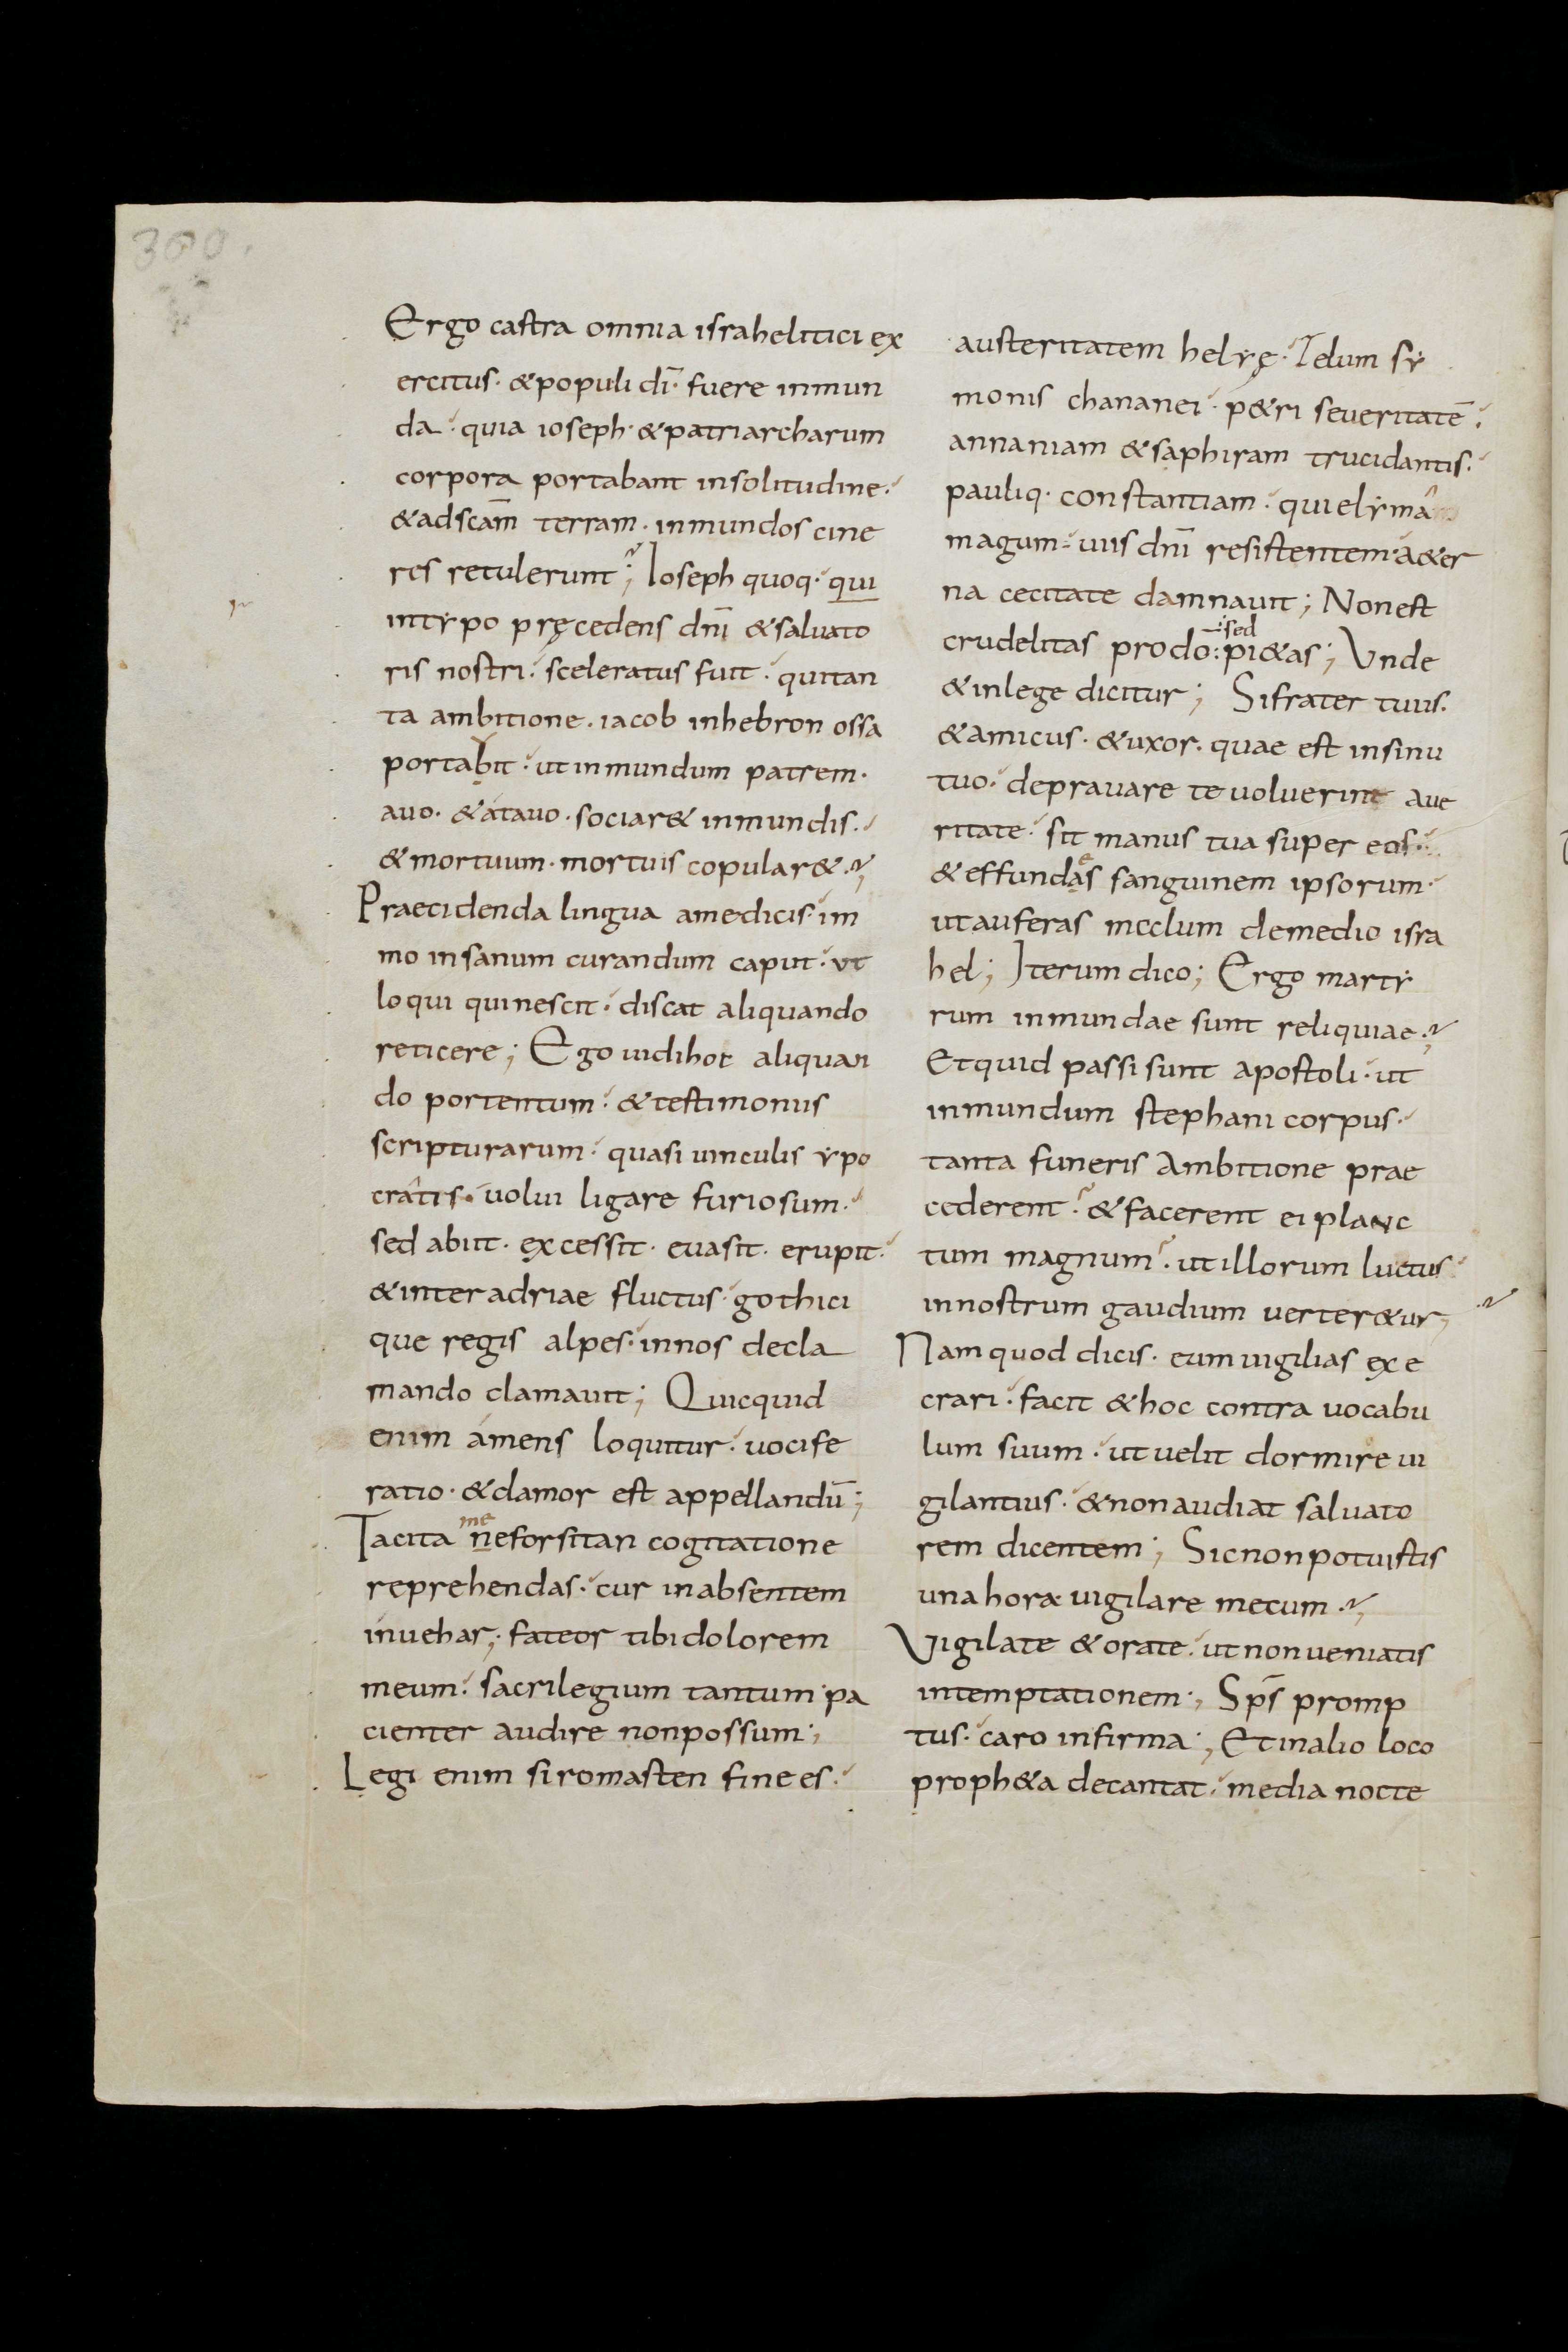 300.
Ergo castra omnia israhelitici ex
ercitus· & populi dī· fuere inmun
da· quia ioseph· & patriarcharum
corpora portabant insolitudine·
& adscām terram· inmundos cine
res retulerunt; Ioseph quoq· qui
intẏpo pręcedens dnī & saluato
ris nostri· sceleratus fuit· quitan
ta ambitione· iacob inhebron ossa
portabit· ut inmundum patrem·
auo· & átauo· sociar& inmundis·
& mortuum· mortuis copular&·;
Praecidenda lingua amedicis· im
mo insanum curandum caput· ut
loqui quinescit· discat aliquando
reticere; Ego uidihoc aliquan
do portentum· & testimoniis
scripturarum· quasi uinculis ẏpo
crâtis· uolui ligare furiosum·
sed abiit· excessit· euasit· erupit·
& inter adriae fluctus· gothici
que regis alpes· innos decla
mando clamauit; Quicquid
enim ámens loquitur· uocife
ratio· & clamor est appellandū;
me
Tacita neforsitan cogitatione
reprehendas· cur inabsentem
inuehar; fateor tibi dolorem
meum· sacrilegium tantum pa
cienter audire nonpossum;
Legi enim siromasten finees·
austeritatem helẏę· Zelum sẏ
monis chananei· p&ri seueritatē·
annaniam & saphiram trucidantis·
pauliq· constantiam· qui elẏmâ
magum· uiis dnī resistentem· a&er
na cecitate damnauit; Nonest
sed
crudelitas prodo: pi&as; Unde
& inlege dicitur; Sifrater tuus·
& amicus· & uxor· quae est insinu
tuo· deprauare te uoluerint aue
ritate· sit manus tua super eos·
e
& effundas sanguinem ipsorum·
ut auferas malum demedio isra
hel; Iterum dico; Ergo martẏ
rum inmundae sunt reliquiae·;
Etquid passi sunt apostoli· ut
inmundum stephani corpus·
tanta funeris ambitione prae
cederent· & facerent ei planc
tum magnum· ut illorum luctus
innostrum gaudium uerter&ur;
Nam quod dicis· eum uigilias exe
crari· facit & hoc contra uocabu
lum suum· ut uelit dormire ui
gilantius· & non audiat saluato
rem dicentem; Sic non potuistis
una hora uigilare mecum·;
Uigilate & orate· ut non ueniatis
intemptationem; Sps̄ promp
tus· caro infirma; Et inalio loco
proph&a decantat· media nocte